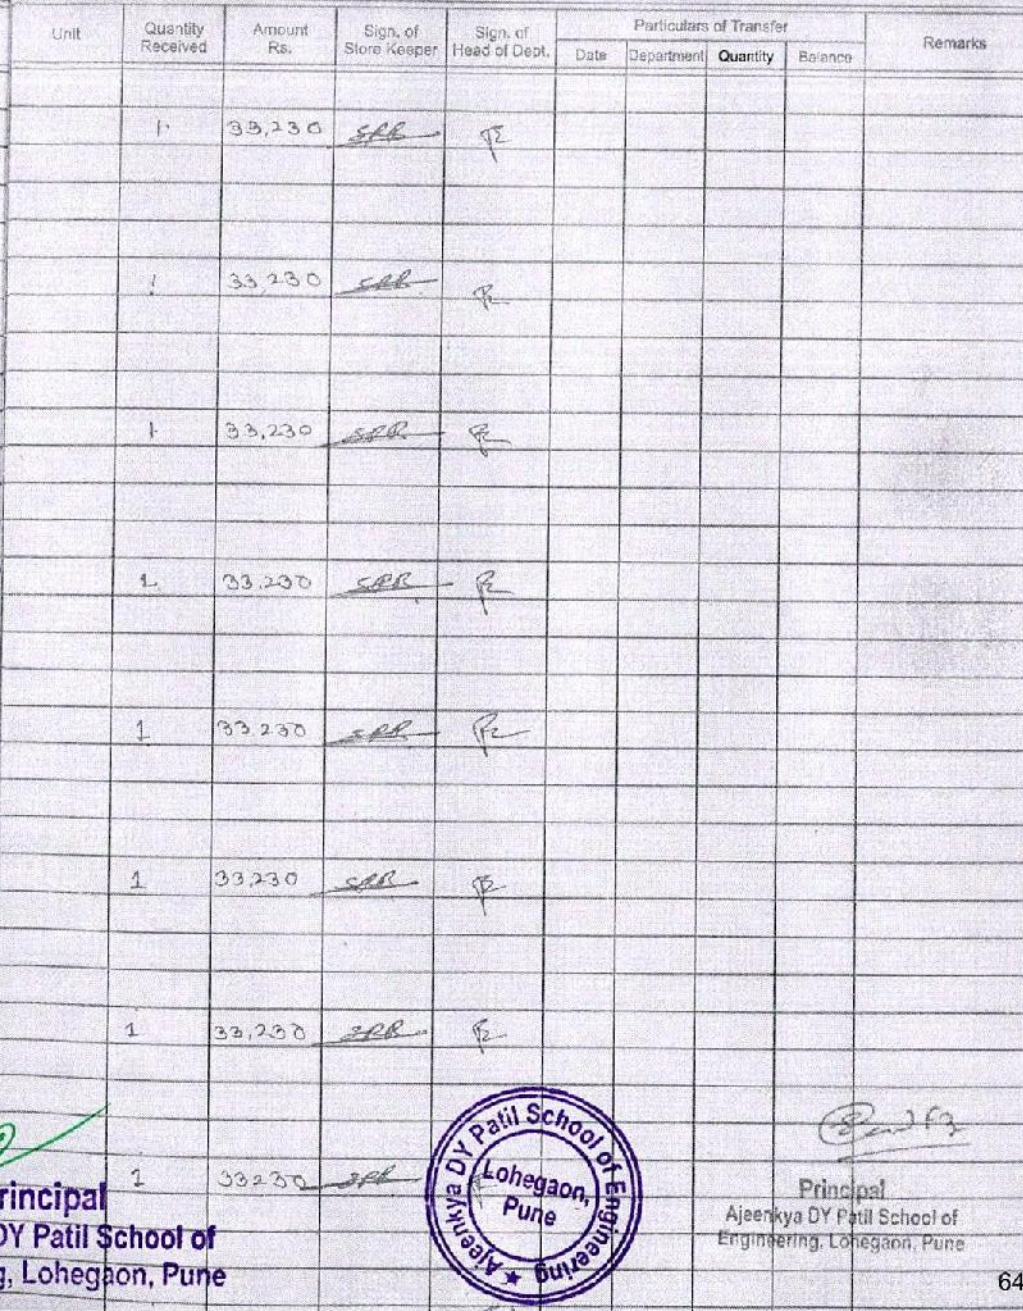 Unit Quantity Received Amount Rs. Sign. of Store Keeper Sign. of Head of Dept. Particulars of Transfer Remarks
Date Department Quantity Balance
1 33,230 SRR
1 33,230 SRR
1 33,230 SRR
1 33,230 SRR
1 33,230 SRR
1 33,230 SRR
1 33,230 SRR
1 33230 SRR
rincipal
DY Patil School of
g, Lohegaon, Pune
Ajeenkya DY Patil School of Engineering
Lohegaon,
Pune
Principal
Ajeenkya DY Patil School of
Engineering, Lohegaon, Pune
64